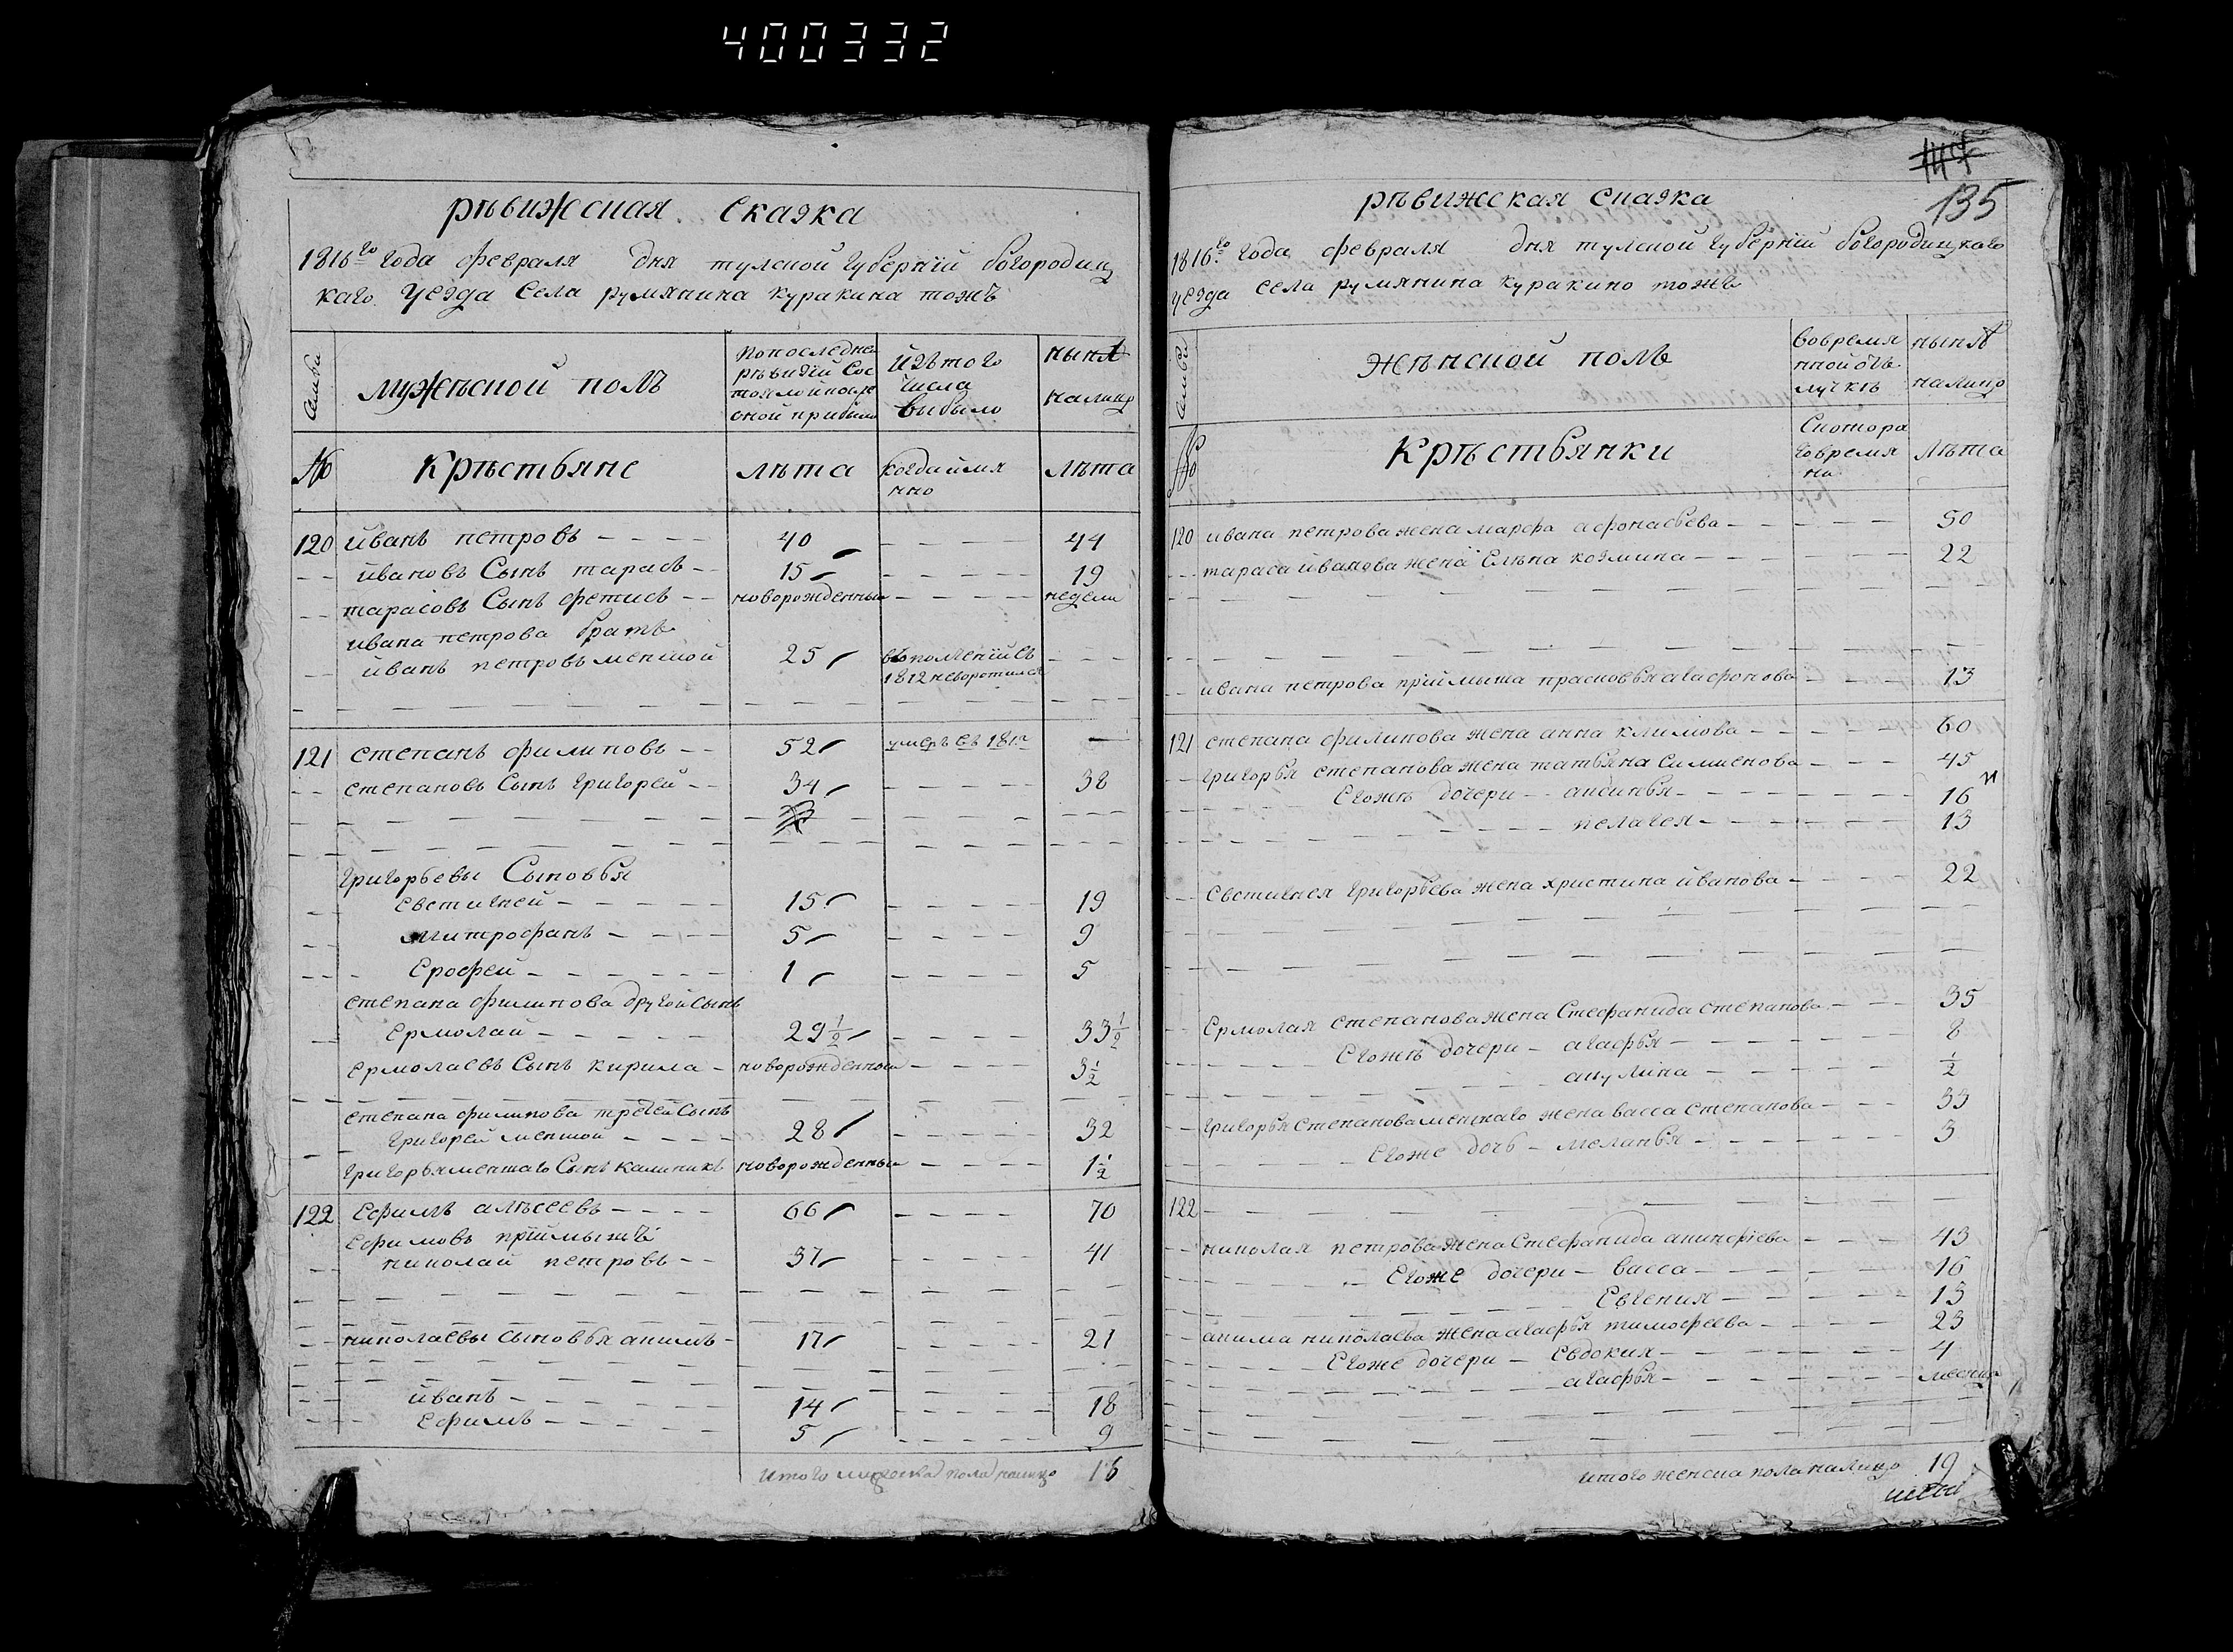 400332
рѣвижсная Сказка
1816го года февраля дня тулсной губернїй богородиц
каго уезда Села румянина куракина тожъ
Семьи
мужѣсной полъ
По последней
рѣвизїй Сос
Изъ того
числа
выбыло
нынѣ
налицо
№
Крѣстьяне
лѣта
когда имя
нно
лѣта
120 йванъ петровъ 40 44
йвановъ Сынъ тарасъ 15 19
тарасовъ Сынъ фетисъ новорожденный недели
ивана петрова братъ
йванъ петровъ меншой 25 въ ополченїй съ
1812 не воротился
121 степанъ филиповъ 52 умеръ въ 181
степановъ Сынъ григорей 34 38
григорьевы Сыновья
Евстигней 15 19
митрофанъ 5 9
Ерофей 1 5
степана филипова другой сынъ
Ермолай 29½ 33½
Ермолаевъ Сынъ кирила новорожденной 3½
степана филипова третей Сынъ
григорей меншой 28 32
григорья меншаго Сынъ калиникъ новорожденный 1½
122 Ефимъ алѣсеевъ 66 70
Ефимовъ прїймышъ
николай петровъ 37 41
николаевы сыновья анимъ 17 21
йванъ 14 18
Ефимъ 5 9
итого мужеска пола налицо 18
147
135
рѣвижская Снаска
1816го года февраля дня тулсной губернїй богородицкаго
уезда села румянина куракино тожъ
Семьи
Жѣнсной полъ
Вовремя
нной отъ
лучкѣ
нынѣ
налицо
№
Крѣстьянки
Скотора
говремя
ни
лѣта
120 ивана петрова жена марфа афонасьева 50
тараса йванова жена Елѣна козмина 22
ивана петрова прїймыша прасковья агафонова 13
121 степана филипова жена анна климова 60
григорья степанова жена татьяна Симионова 45
Егожъ дочери аксинья 16
пелагея 13
Евстигнея григорьева жена христина йванова 22
Ермолая степанова жена Стефанида степанова 35
Егожъ дочери агафья 8
акулина ½
григорья степанова меншаго жена васса степанова 33
Егоже дочь меланья 3
122
николая петрова жена Стефанида анинфїева 43
Егоже дочери васса 16
Евгения 13
анима николаева жена агафья тимофеева 23
Егоже дочери Евдокия 4
агафья месяца
итого женска пола налицо 19